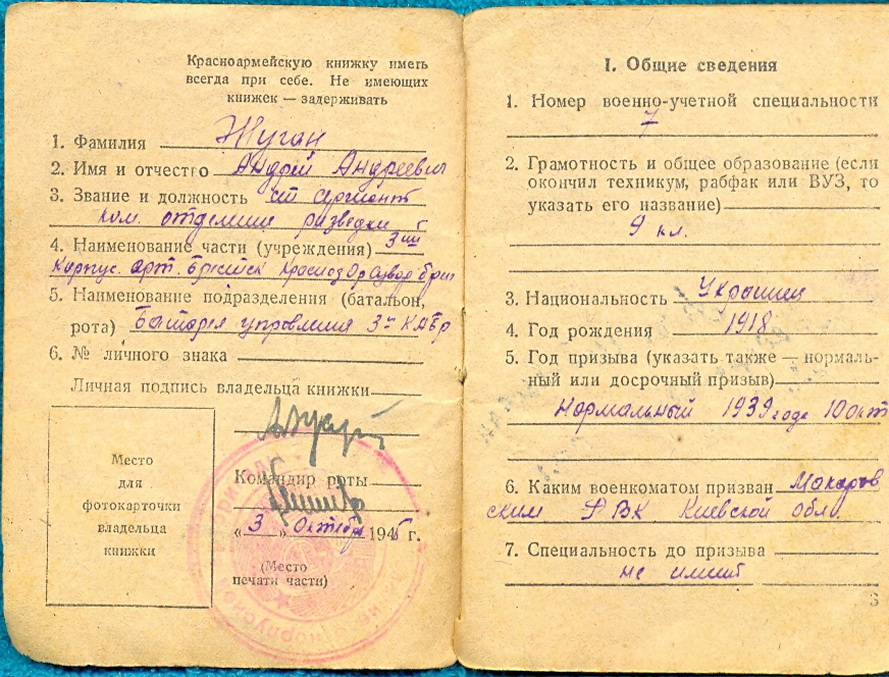 Красноармейскую книжку иметь
всегда при себе. Не имеющих
книжек — задерживать
1. Фамилия Жуган
2. Имя и отчество Андрей Андреевич
3. Звание и должность ст сержант
ком. отделения разведки
4. Наименование части (учреждения) 3ей
Корпус. арт. Краснозн бриг
5. Наименование подразделения (батальон,
рота) Батарея управления 3й КАБр
6. № личного знака
Личная подпись владельца книжки
Командир роты
„3“ Октября 1945 г.
(Место
печати части)
Место
для
фотокарточки
владельца
книжки
I. Общие сведения
1. Номер военно-учетной специальности
7
2. Грамотность и общее образование (если
окончил техникум, рабфак или ВУЗ, то
указать его название)
9 кл.
3. Национальность Украинец
4. Год рождения 1918
5. Год призыва (указать также — нормаль-
ный или досрочный призыв)
Нормальный 1939 года 10 окт
6. Каким военкоматом призван Макаров
ским РВК Киевской обл.
7. Специальность до призыва
не имеет
3